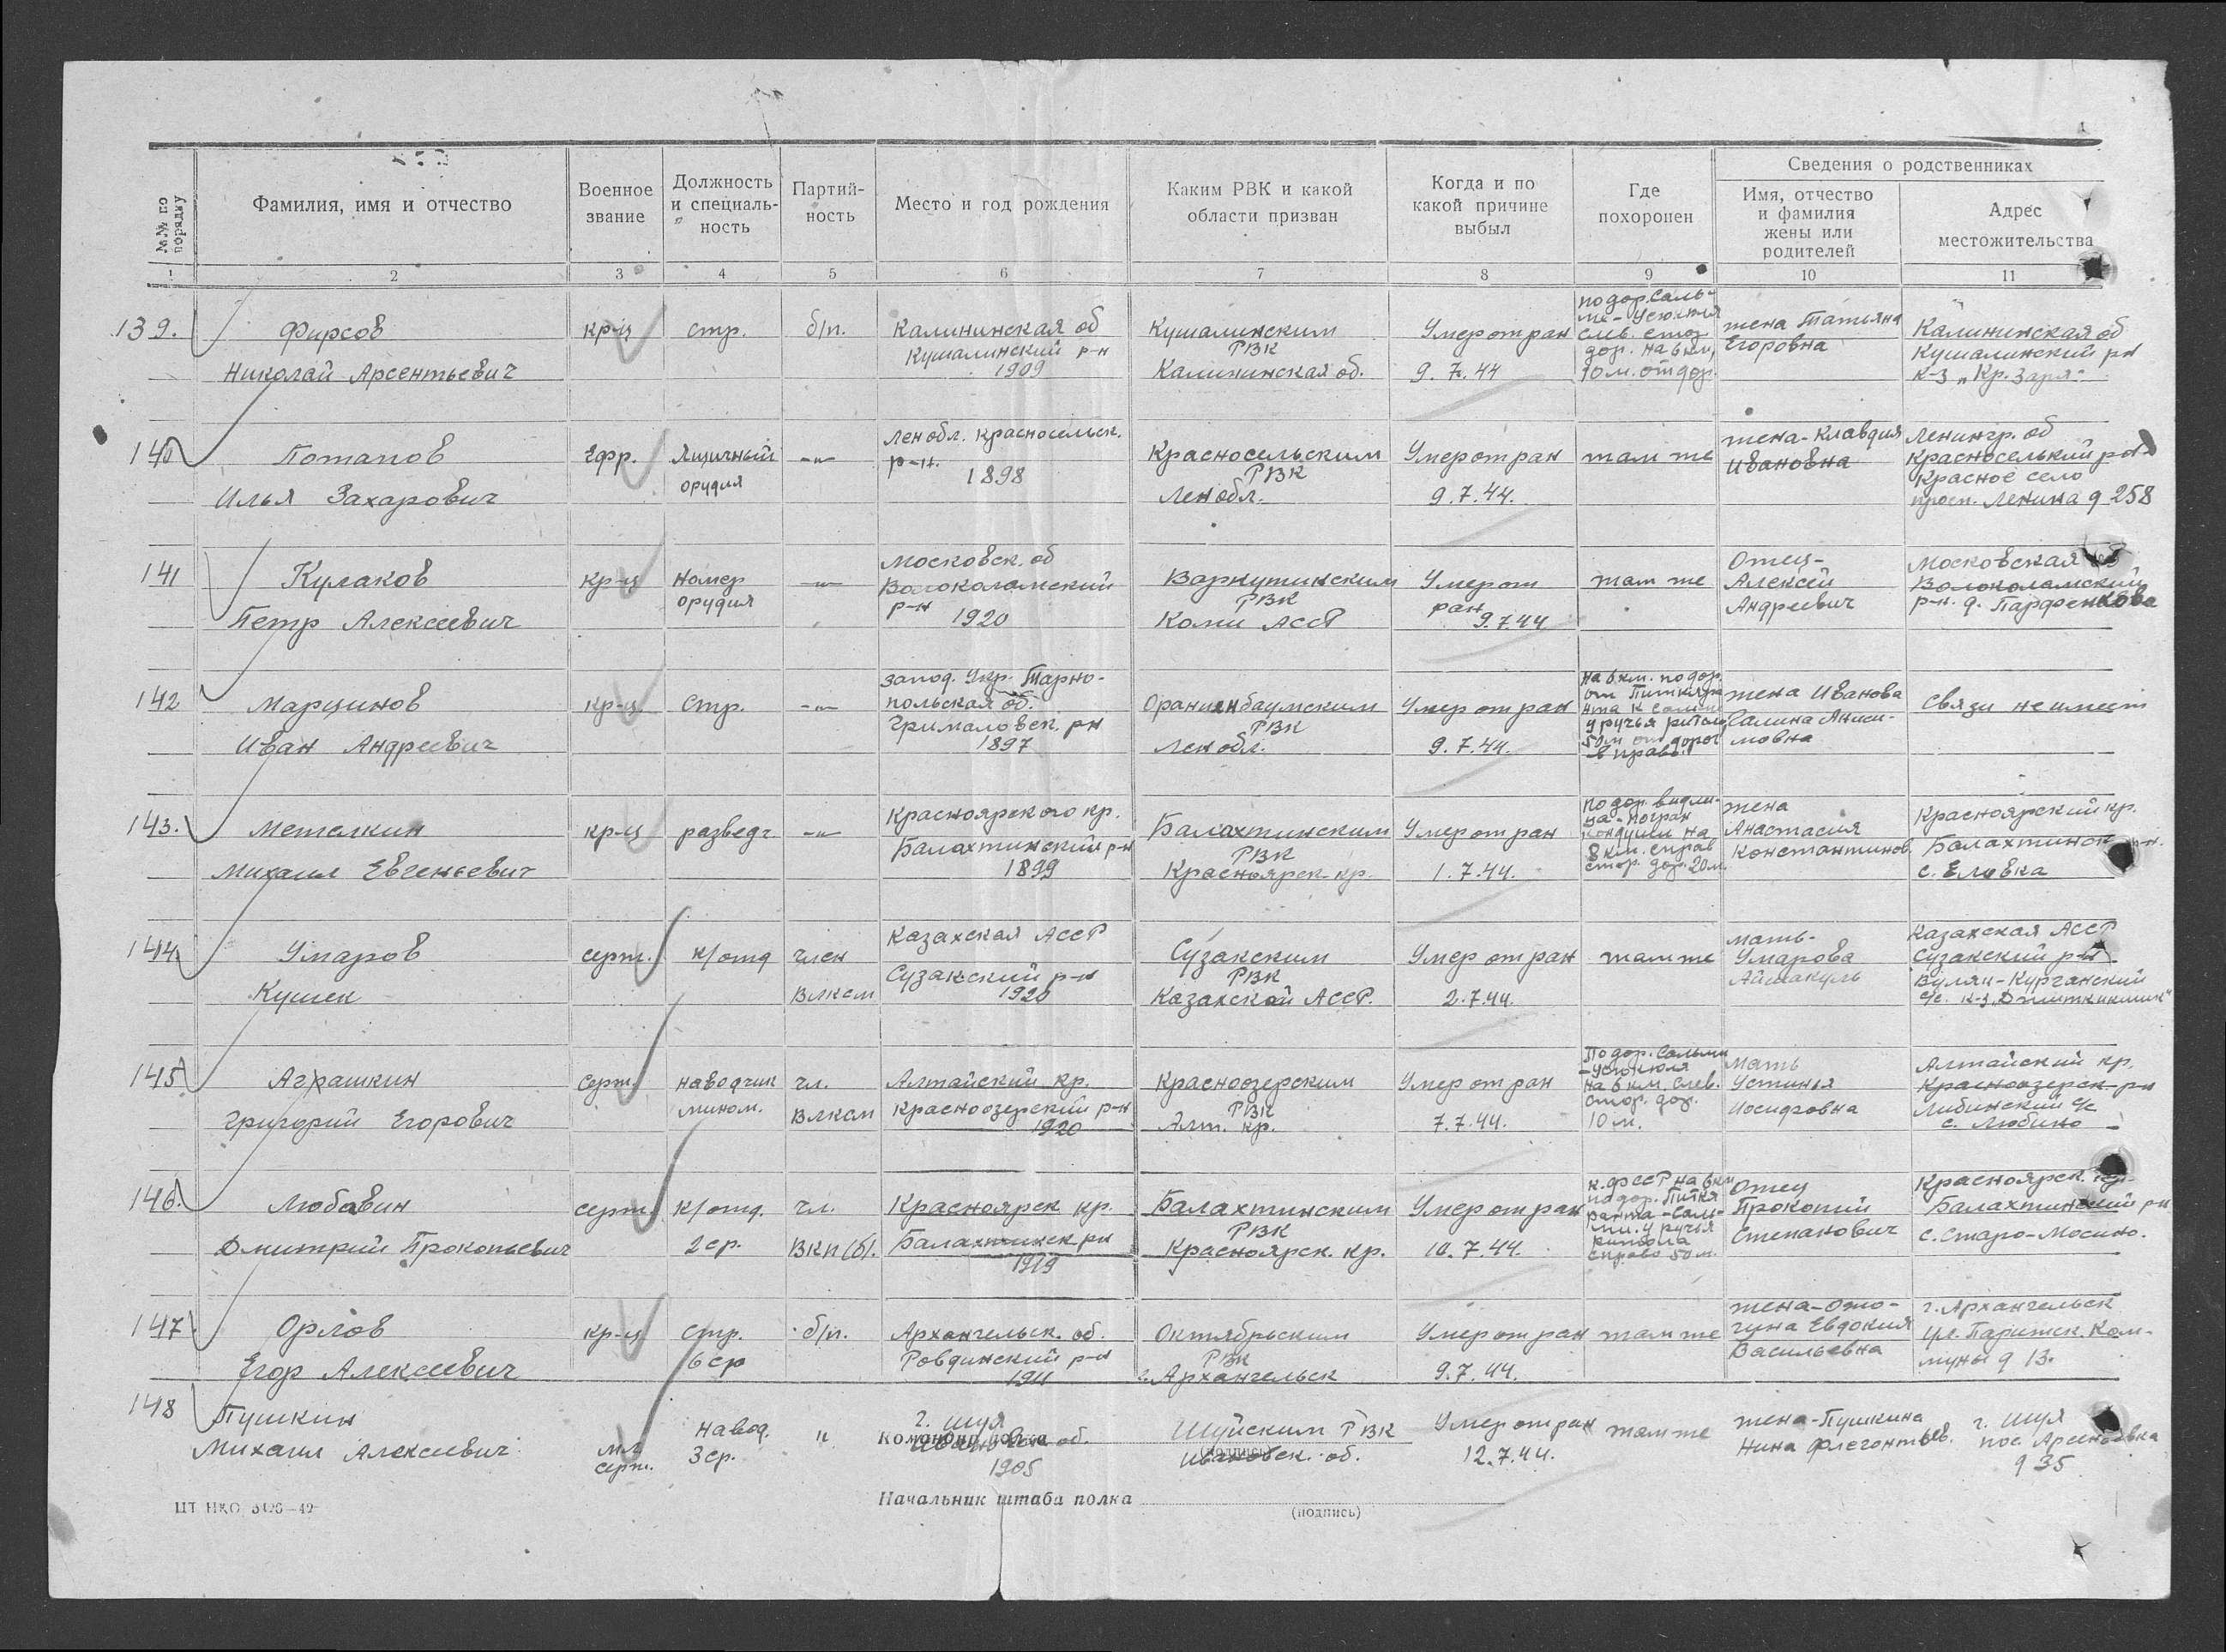 №№ по порядку
Фамилия, имя и отчество
Военное звание
Должность и специальность
Партийность
Место и год рождения
Каким РВК и какой области призван
Когда и по какой причине выбыл
Где похоронен
Сведения о родственниках
Имя, отчество и фамилия жены или родителей
Адрес местожительства
1 2 3 4 5 6 7 8 9 10 11
139. Фирсов
Николай Арсентьевич
кр-ц
стр.
б/п.
Калининская об
Кушалинский р-н
1909
Кушалинским
РВК
Калининская об.
Умер от ран
9.7.44
по дор. Саль-
ми - Уоюкюля
слев. стор
дор. на 6 км,
10 м. от дор.
жена Татьяна
Егоровна
Калининская об
Кушалинский рн
к-з „Кр. Заря"
140 Потапов
Илья Захарович
Ефр.
Ящичный
орудия
-"-
Лен обл. Красносельск.
р-н.
1898
Красносельским
РВК
Лен обл.
Умер от ран
9.7.44.
там же
жена - Клавдия
Ивановна
Ленингр. об
Красноселький р-н
Красное село
просп. Ленина д 258
141 Кулаков
Петр Алексеевич
кр-ц
Номер
орудия
-"-
Московск. об
Волоколамский
р-н
1920
Воркутинским
РВК
Коми АССР
Умер от
ран
9.7.44
там же
Отец -
Алексей
Андреевич
Московская об
Волоколамский
р-н. д. Парфенкова
142 Марцинов
Иван Андреевич
кр-ц
Стр.
-"-
Запод. Укр. Тарно-
польская об.
Грималовск. рн
1897
Ораниенбаумским
РВК
Лен обл.
Умер от ран
9.7.44.
на 6 км. по дор.
от Питкяра
нта к Салми
у ручья
50 м от дорог
вправо.
жена Иванова
Галина Аниси-
мовна
Связи не имеет
143. Метелкин
Михаил Евгеньевич
кр-ц
разведч
-"-
Красноярского кр.
Балахтинский р-н
1899
Балахтинским
РВК
Красноярск. кр.
Умер от ран
1.7.44.
по дор. видли-
ца - погран
Кондуши на
8 км. справ
стор. дор. 20 м.
жена
Анастасия
Константинов.
Красноярский кр.
Балахтинск р-н.
с. Еловка
144. Умаров
Кушек
серж.
к/отд
член
ВЛКСМ
Казахская АССР
Сузакский р-н
1920
Сузакским
РВК
Казахской АССР.
Умер от ран
2.7.44.
там же
мать -
Умарова
Аймакуль
Казахская АССР
Сузакский р-н
-Курганский
с/с. к-з
145 Аграшкин
Григорий Егорович
Серж.
наводчик
мином.
чл.
ВЛКСМ
Алтайский кр.
Красноозерский р-н
1920
Красноозерским
РВК
Алт. кр.
Умер от ран
7.7.44.
По дор. Сальми
- Уоюкюля
на 6 км, слев.
стор. дор.
10 м.
Мать
Устинья
Иосифовна
Алтайский кр.
Красноозерск рн
Любинский с/с
с. Любино
146. Любавин
Дмитрий Прокопьевич
серж.
к/отд.
2 ср.
чл.
ВКП(б).
Красноярск кр.
Балахтинск рн
1919
Балахтинским
РВК
Красноярск. кр.
Умер от ран
10.7.44.
к.ФССР на 6 км
по дор. Питкя
ранта - Сал-
ми. у ручья
справа 50 м.
Отец
Прокопий
Степанович
Красноярск. кр.
Балахтинский рн
с. Старо-Мосино.
147. Орлов
Егор Алексеевич
кр-ц
Стр.
6 ср
б/п.
Архангельск. об.
Ровдинский р-н
1911
Октябрьским
РВК
г. Архангельск
Умер от ран
9.7.44.
там же
жена -
Евдокия
Васильевна
г. Архангельск
ул. Парижск. Ком-
муны д 13.
148 Пушкин
Михаил Алексеевич
мл
серж.
Навод.
3 ср.
"
г. Шуя
Ивановск об.
1905
Шуйским РВК
Ивановск. об.
Умер от ран
12.7.44.
там же
жена - Пушкина
Нина Флегонтьев.
г. Шуя
пос. Арсеньевка
д 35
Командир полка
(подпись)
Начальник штаба полка
(подпись)
ЦТ НКО